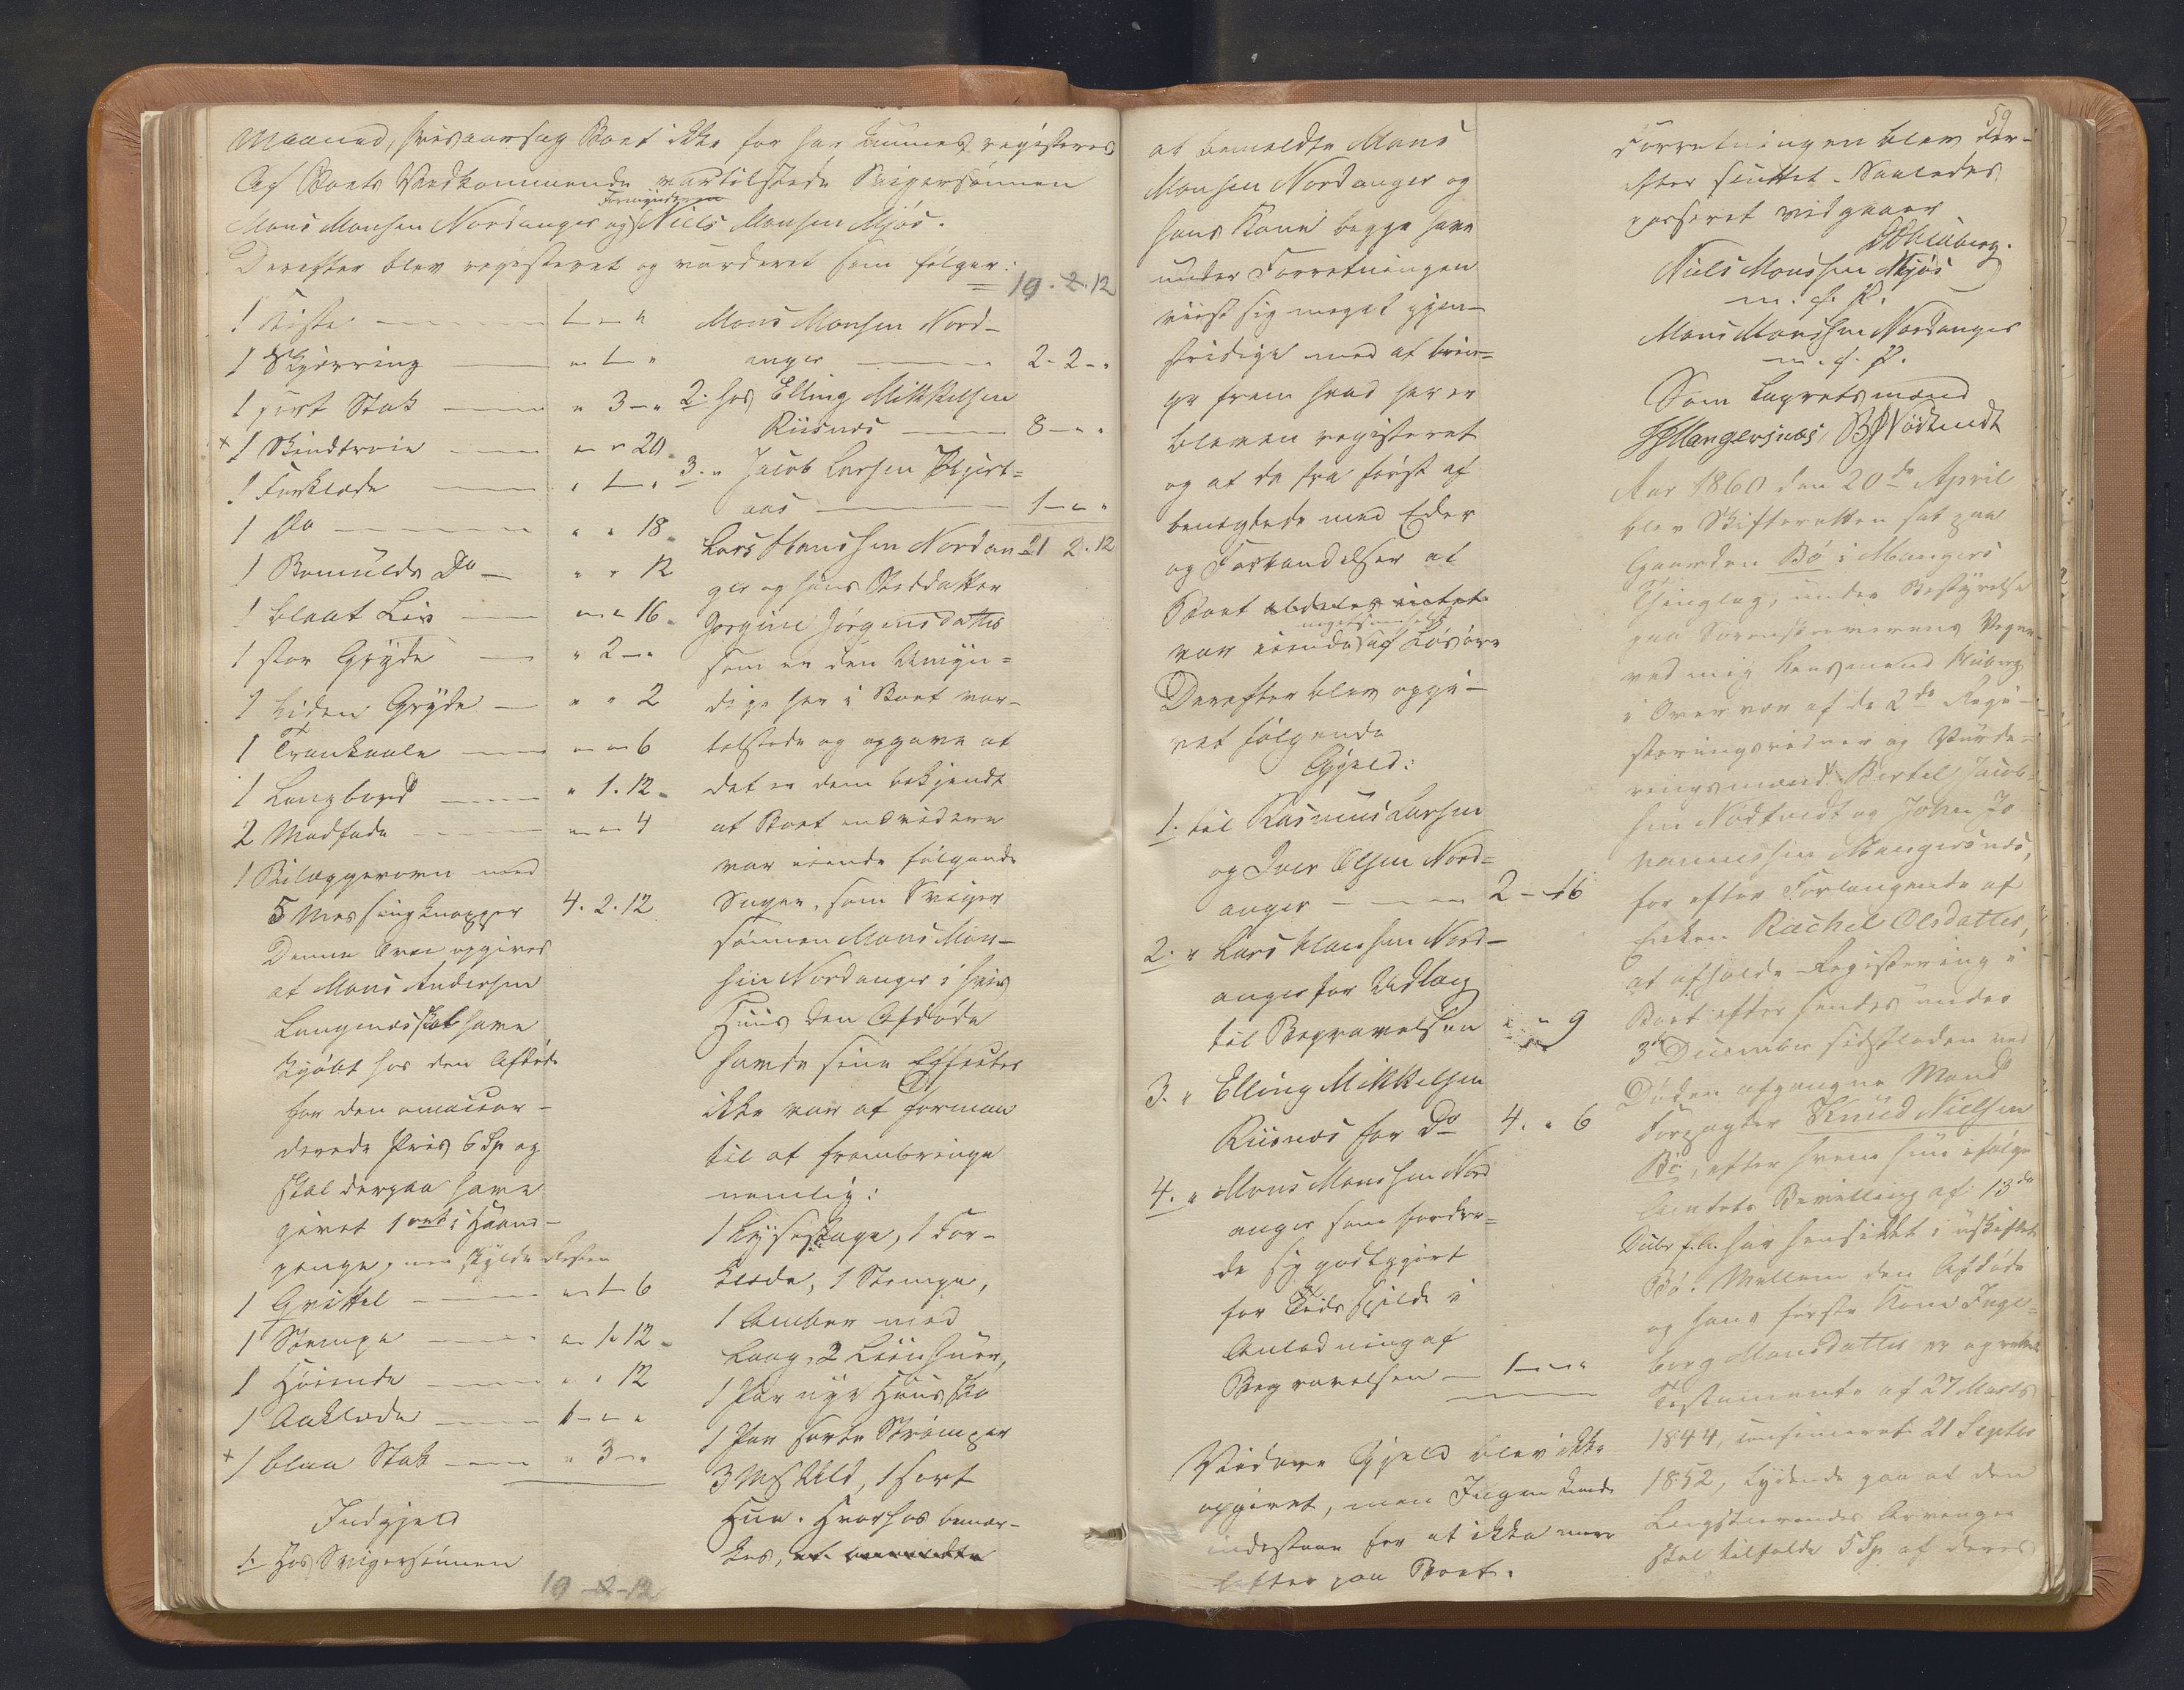 Maaned, hvisaarsag Boet ikke før har kunnet registeres
Af Boets Vedkommende var tilstede Svigersønnen
Formynderen
Mons Monsen Nordanger og Niels Monsen Mjøs.
Derefter blev registeret og vurderet som følger:
1 Kiste
1 Skjørring
1 sort Stak " 3 - "
1 Skindtrøie " " 20
1 Forklæde
1 Do " " 18
1 Bomulds Do " " 12
1 blaat Liv " " 16
1 stor Gryde " 2 - "
1 liden Gryde " " 2
1 Trankaale " " 6
1 Langbord " 1. 12
2 Madfade " " 4
1 Bilæggerovn med
5 Messingknapper 4. 2. 12
Denne Ovn opgives
at Mons Andersen
Langenæsskal have
kjøbt hos den Afdøde
for den
derede Priis 6 Sp og
skal derpaa have
givet 1 ort i Haand-
penge, men skylde Resten
1 Grittel " 1 - 6
1 Stempe " 1 - 12
1 Høiende " " 12
1 Aaklæde 1 - " "
1 blaa Stak " 3 - "
Indgjeld
1. Hos Svigersønnen
19 - 2 - 12
19. 2. 12
Mons Monsen Nord-
anger 2 - 2 - "
2. hos Elling Mikkelsen
Riisnæs 8 - " "
3. " Jacob Larsen
aas 1 - " "
Lars Hansen Nordan- 21 2. 12
ger og hans Steddatter
Jørgine Jørgensdatter
som er den Umyn-
dige her i Boet var
tilstede og opgave at
det er dem bekjendt
at Boet endvidere
var eiende følgende
Sager, som Sviger
sønnen Mons Mon-
sen Nordanger i hvis
Huus den Afdøde
havde sine Effecter
ikke var at formaa
til at frembringe
nemlig:
1 Lysestage, 1 For-
klæde, 1 Stempe,
1 Ambar med
Laag, 2 Liinhuer,
1 Par nye Huussko
1 Par sorte Strømper
3 Mk Uld, 1 sort
Hue. Hvorhos bemær-
kes, at bemeldte
at bemeldte Mons
Monsen Nordanger og
hans Kone begge have
under Forretningen
viist sig meget gjen-
stridige med at brin-
ge frem hvad her er
bleven registeret
og at de fra først af
benegtede med Eder
og Forbandelser at
Boet aldeles intet
noget somhelst
var eiende af Løsøre
Derefter blev opgi-
vet følgende
Gjeld:
1. til Rasmus Larsen
og Iver Olsen Nord-
anger 2 - 16
2. " Lars Hansen Nord-
anger for Udlæg
til Begravelsen " " 9
3. " Elling Mikkelsen
Riisnæs for Do 4. " 6
4. " Mons Monsen Nord
anger som fordre-
de sig godtgjort
for Tidsspilde i
Anledning af
Begravelsen 1 - " "
Videre Gjeld blev ikke
opgivet, men Ingen kunde
indestaae for at ikke mere
hefter paa Boet.
59
Forretningen blev der-
efter sluttet. Saaledes
passeret vidgaaer
Niels Monssen Mjøs
m. f. P.
Mons Monssen Nordanger
m. f. P.
Som Laugrettsmænd
Mangersnæs, BJNødtvedt
Aar 1860 den 20de April
blev Skifteretten sat paa
Gaarden Bø i Mangers
Thinglag, under Bestyrelse
paa Sorenskriverens Vegne
ved mig Lensmand
i Overvær af de 2de Regi-
steringsvidner og Vurde-
ringsmænd Bertel Jacob-
sen Nødtvedt og Johan Jo
hannessen Mangersnæs,
for efter Forlangende af
Enken Rachel Olsdatter,
at afholde Registering i
Boet efter hendes under
3de December sidstleden ved
Døden afgangne Mand
Forpagter Knud Nielsen
Bø, efter hvem hun ifølge
Amtets Bevilling af 13de
Decbr f.A. har hensiddet i uskiftet
Bo. Mellem den Afdøde
og hans første Kone Inge-
borg Monsdatter er oprettet
Testamente af 27 Marts
1844, confirmeret 21 Septbr
1852, lydende paa at den
Længstlevendes Arvinger
skal tilfalde 5 Sp af deres